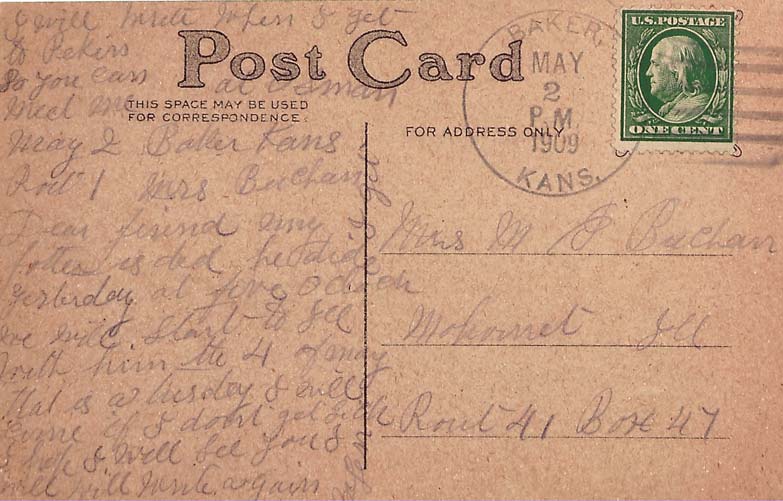 I will write when I get
to Pekins
So you can at Osman
Meet me
Post Card
THIS SPACE MAY BE USED
FOR CORRESPONDENCE.
FOR ADDRESS ONLY
BAKER,
MAY
2
P.M.
1909
KANS.
U.S. POSTAGE
ONE CENT
May 2 Baker Kans
Rout 1 Mrs Buchan
Dear friend my
fotter is ded he dide
yesterday at five O clock
we will start to Ill
with him the 4 of may
that is a tusday I will
come if I dont get sick
I hope I will see you
well will write again
Mrs M P Buchan
Mohomet Ill
Rout 41 Box 47